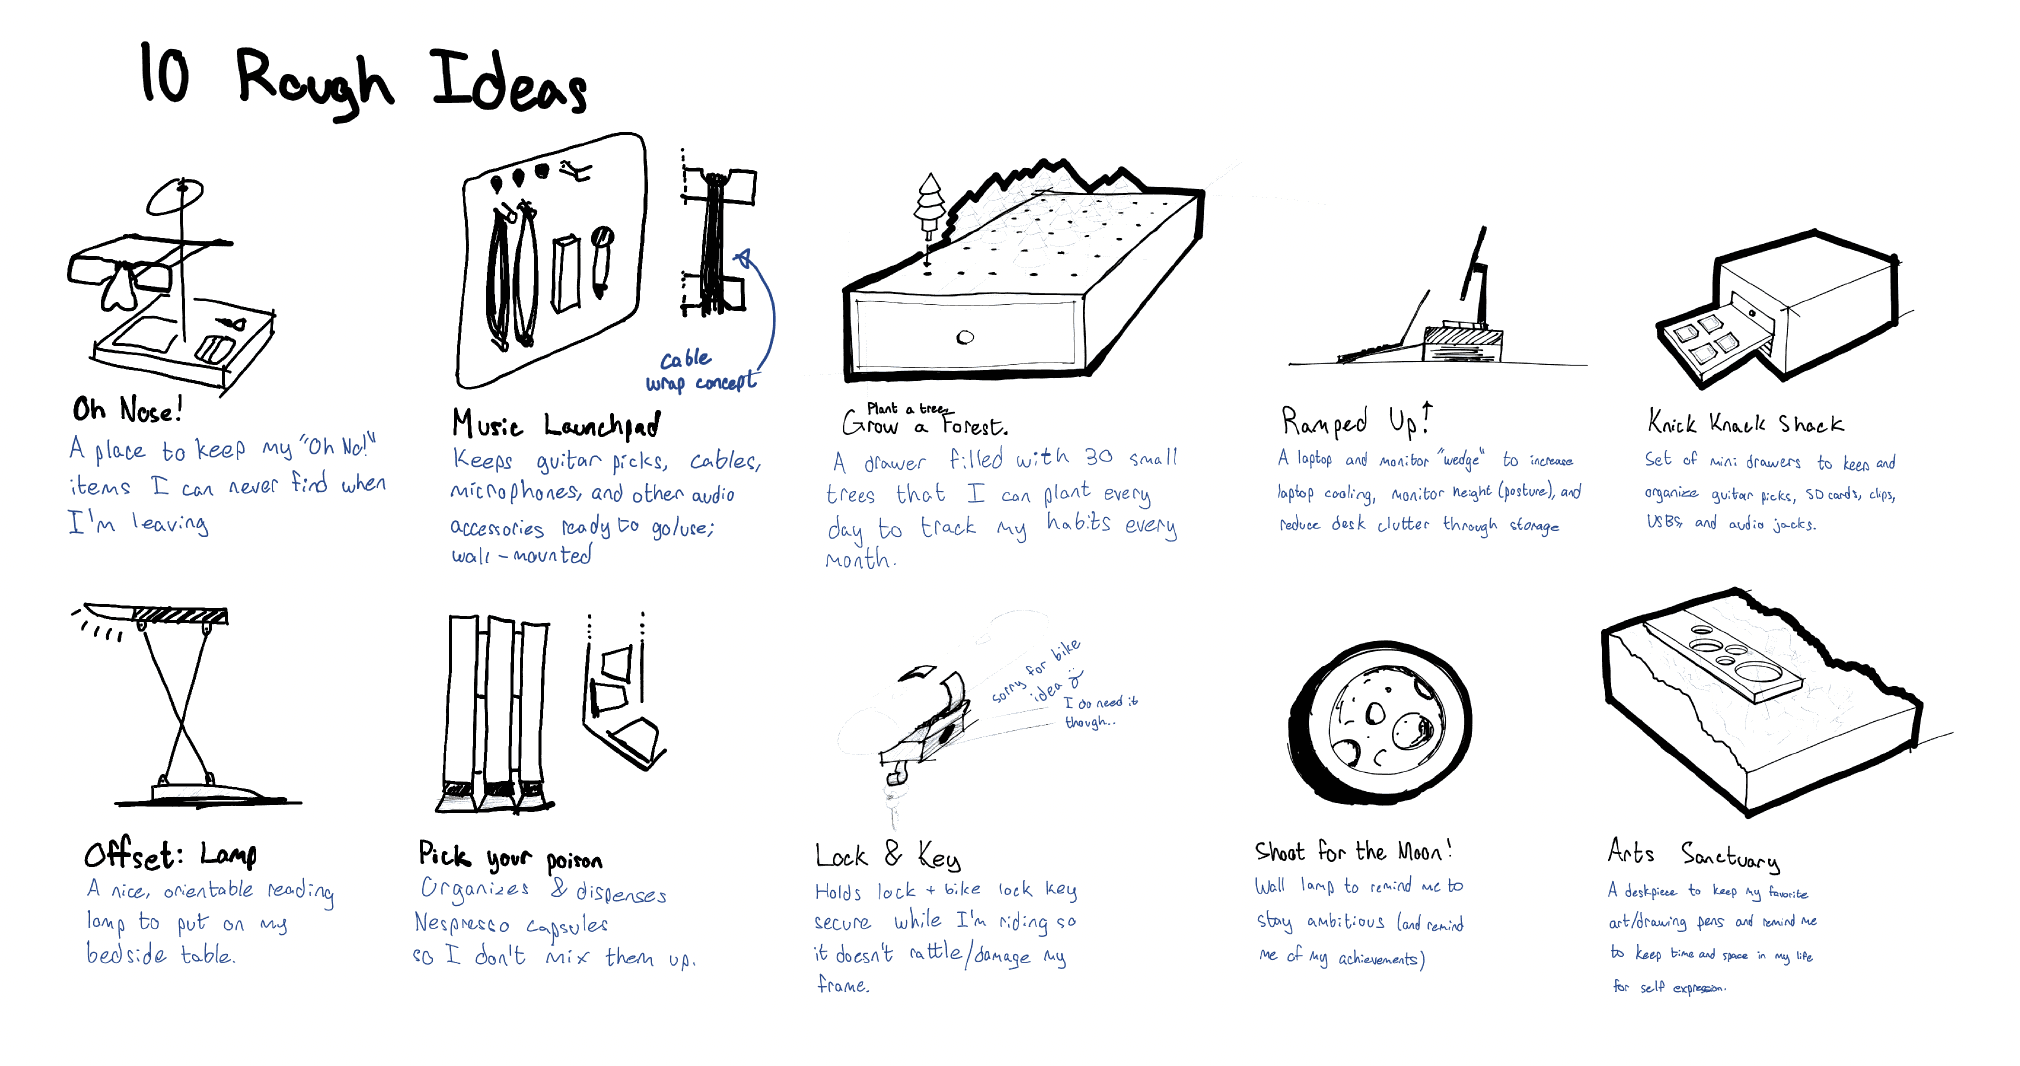 10 Rough Ideas
cable
wrap concept
Oh Nose!
A place to keep my "Oh No!"
items I can never find when
I'm leaving
Music Launchpad
Keeps guitar picks, cables,
microphones, and other audio
accessories ready to go/use;
wall-mounted
Plant a tree,
Grow a Forest.
A drawer filled with 30 small
trees that I can plant every
day to track my habits every
month.
Ramped Up!
A laptop and monitor "wedge" to increase
laptop cooling, monitor height (posture), and
reduce desk clutter through storage
Knick Knack Shack
Set of mini drawers to keep and
organize guitar picks, SD cards, clips,
USBs, and audio jacks.
Offset: Lamp
A nice, orientable reading
lamp to put on my
bedside table.
Pick your poison
Organizes & dispenses
Nespresso capsules
so I don't mix them up.
sorry for bike
idea
I do need it
though..
Lock & Key
Holds lock + bike lock key
secure while I'm riding so
it doesn't rattle/damage my
frame.
Shoot for the Moon!
Wall lamp to remind me to
stay ambitious (and remind
me of my achievements)
Arts Sanctuary
A deskpiece to keep my favorite
art/drawing pens and remind me
to keep time and space in my life
for self expression.